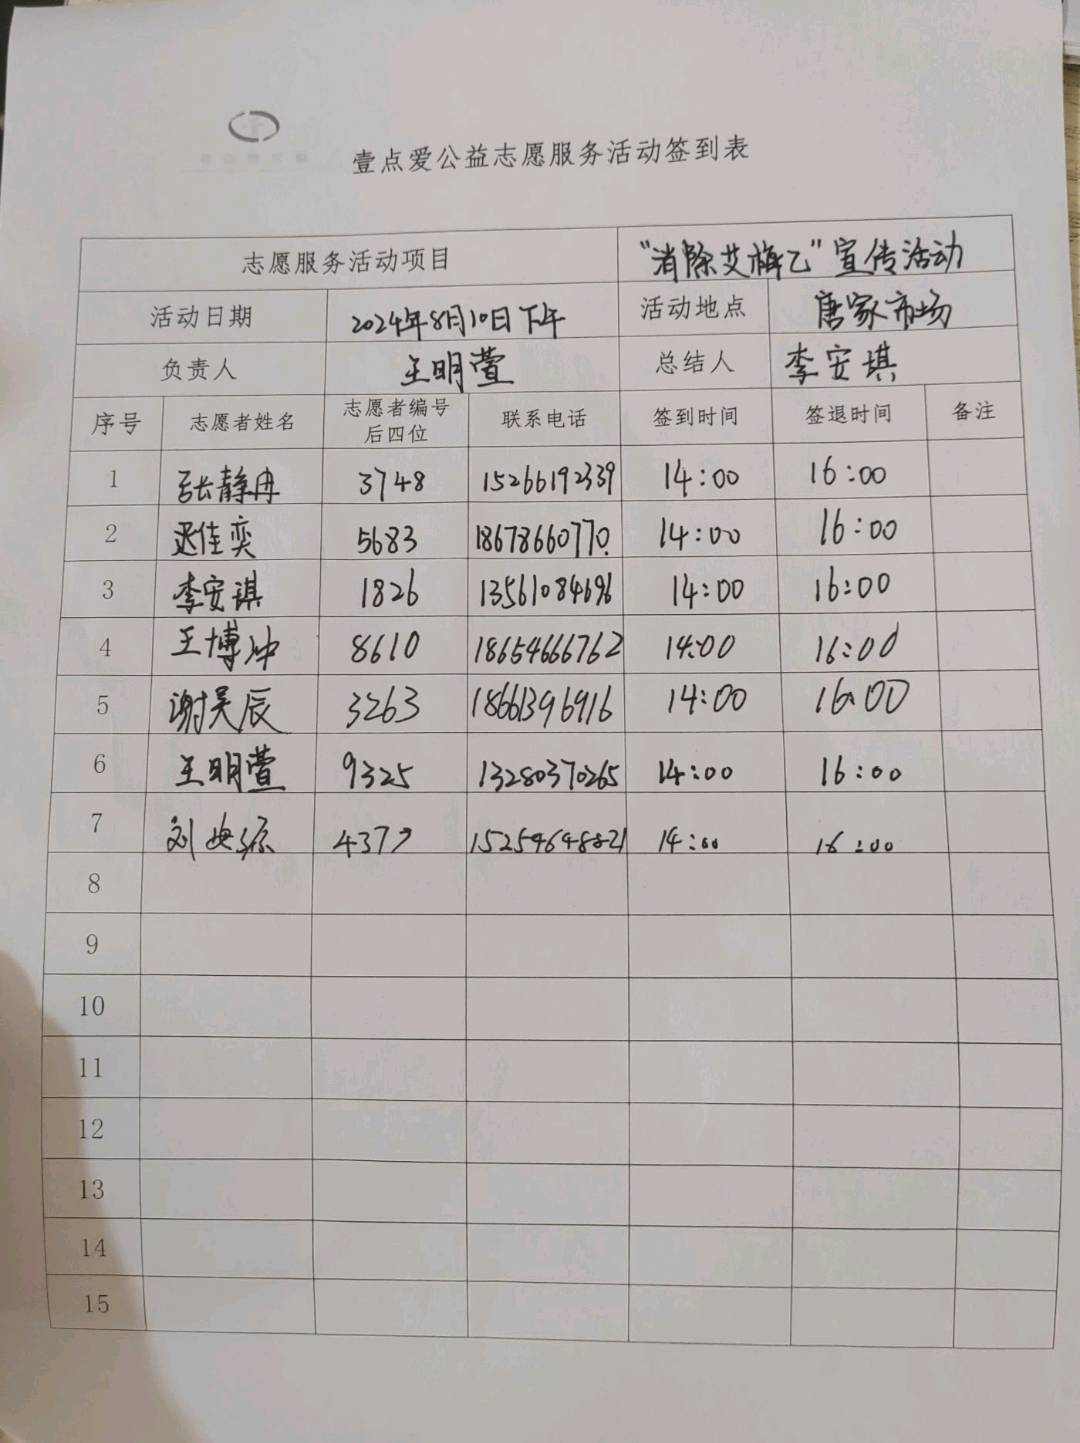 壹点爱公益志愿服务活动签到表
志愿服务活动项目 "消除艾梅乙"宣传活动
活动日期 2024年8月10日下午 活动地点 唐家市场
负责人 王明萱 总结人 李安琪
序号 志愿者姓名 志愿者编号后四位 联系电话 签到时间 签退时间 备注
1 张静冉 3748 15266192339 14:00 16:00
2 迟佳奕 5683 18678660770 14:00 16:00
3 李安琪 1826 13561084696 14:00 16:00
4 王博冲 8610 18654666762 14:00 16:00
5 谢昊辰 3263 18661396916 14:00 16:00
6 王明萱 9325 13280370265 14:00 16:00
7 刘 4379 15254648821 14:00 16:00
8
9
10
11
12
13
14
15